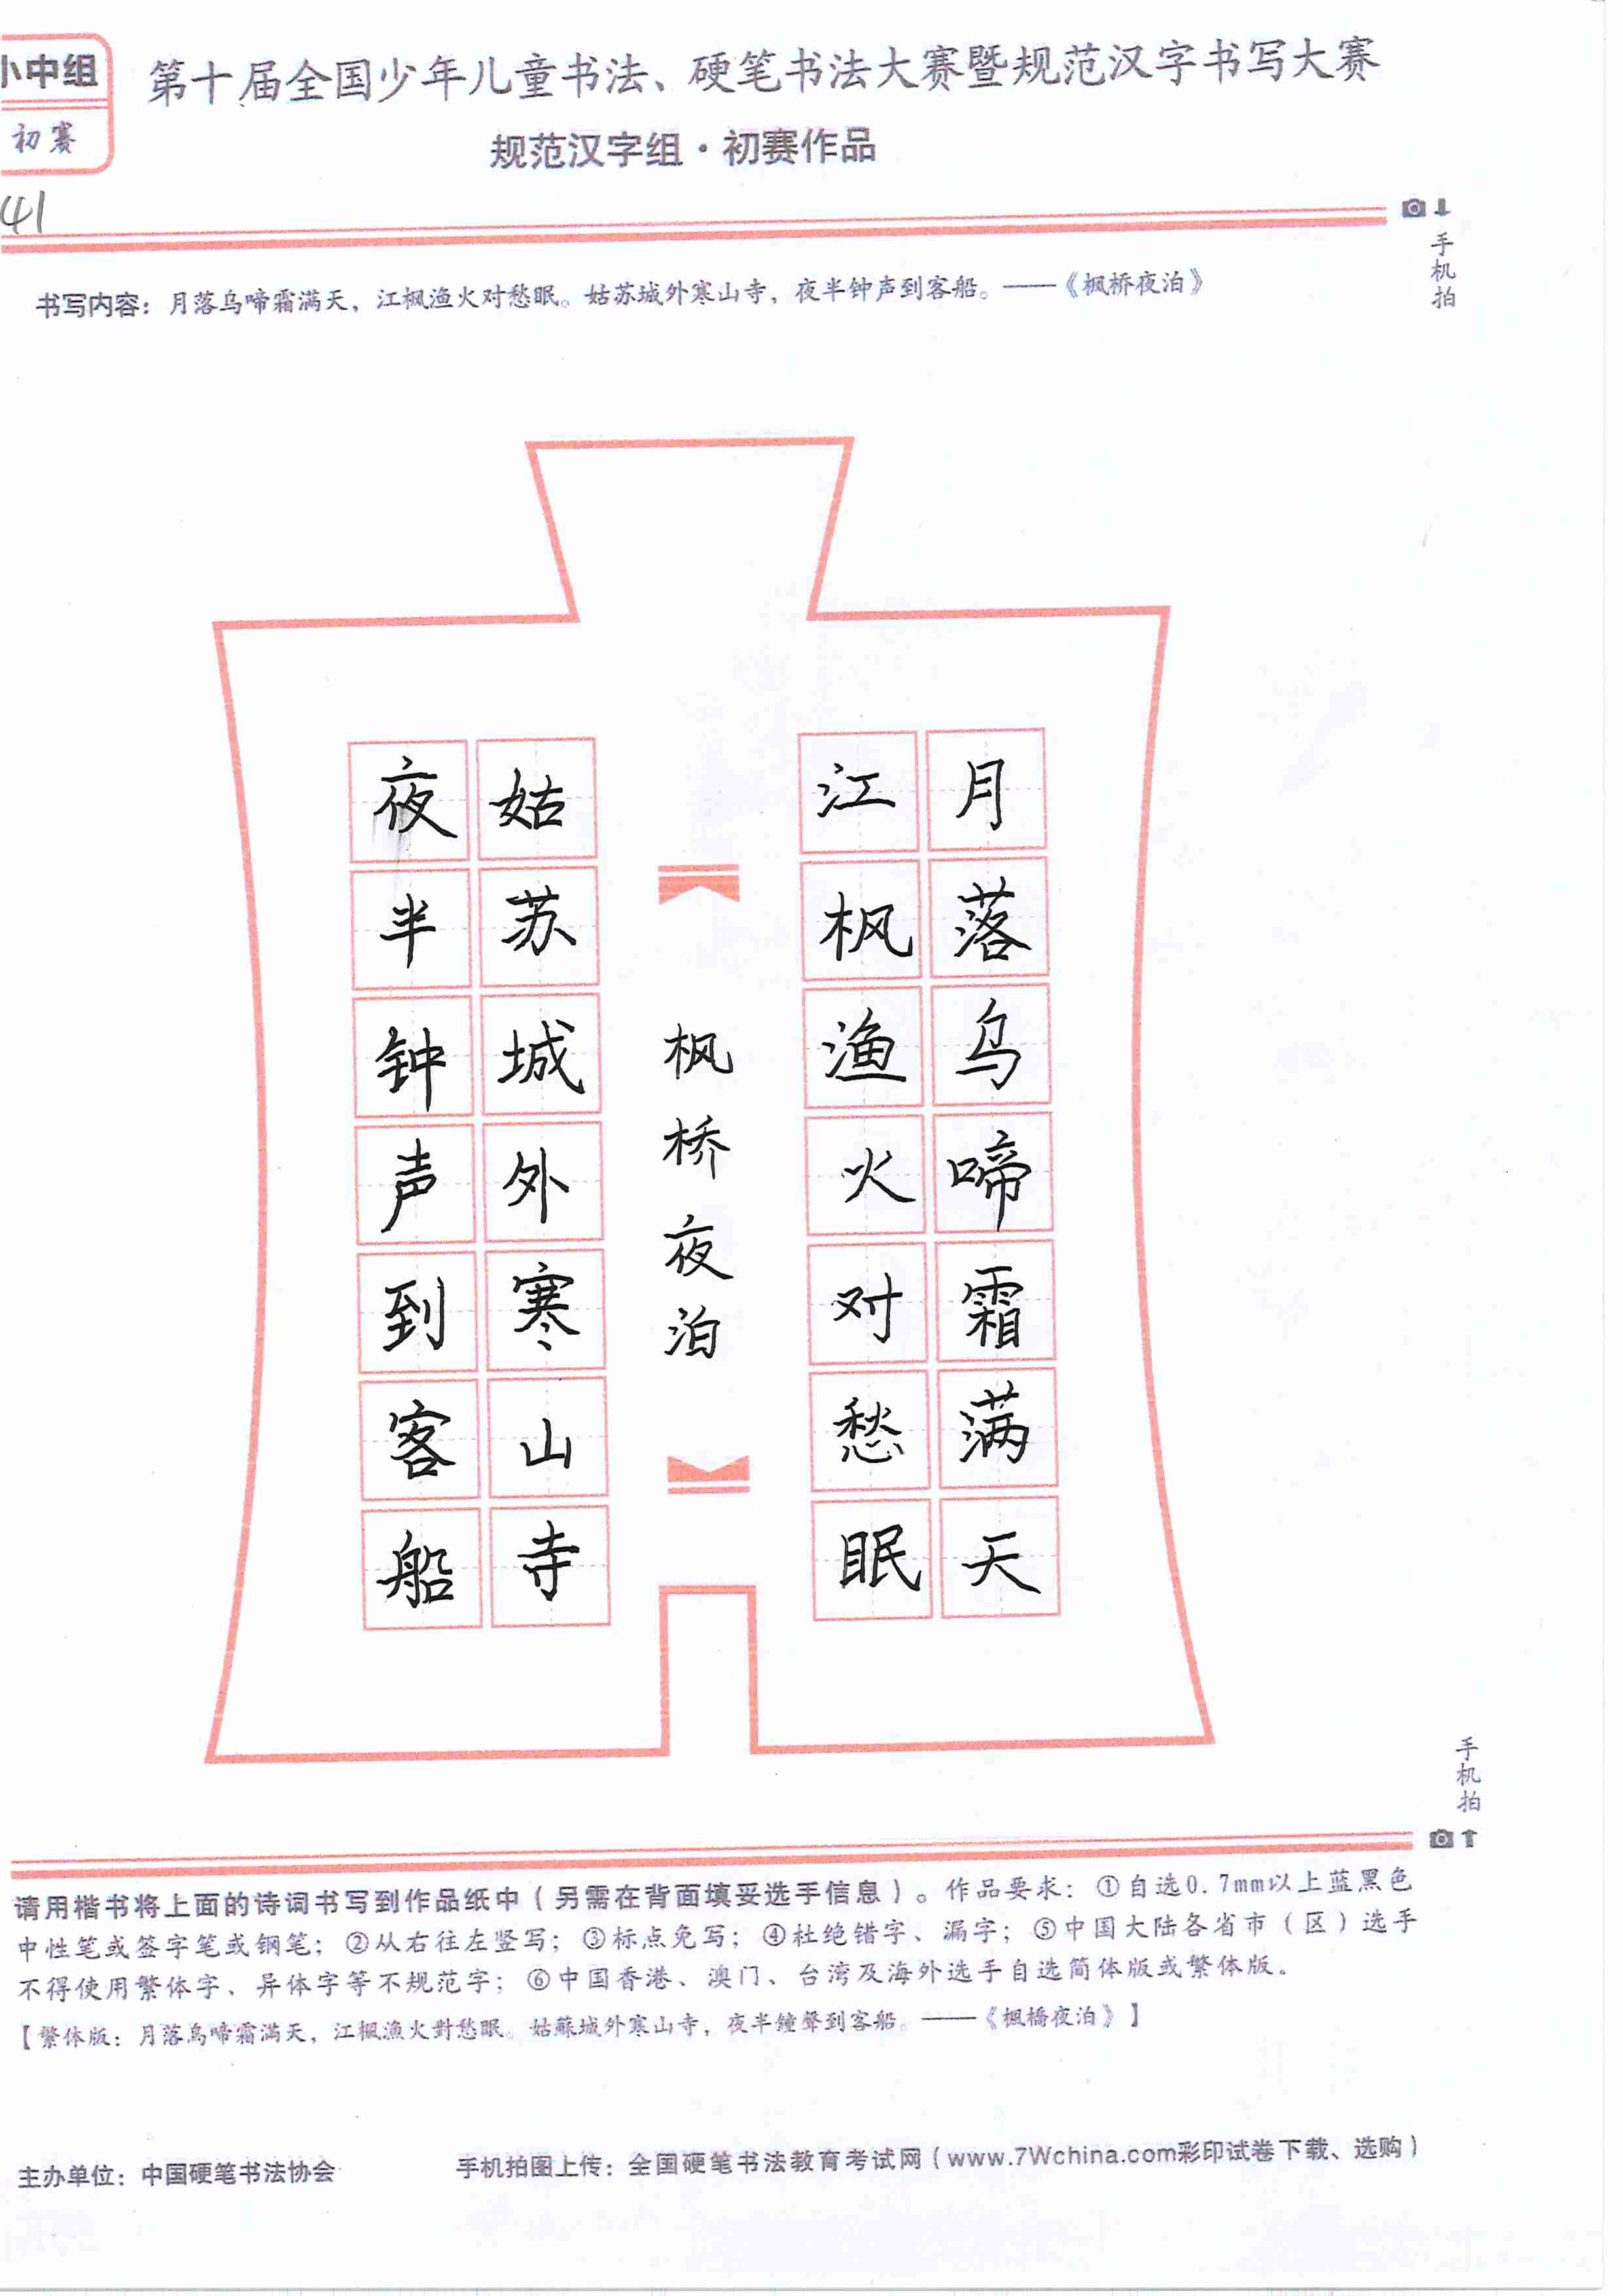 小中组
初赛
第十届全国少年儿童书法、硬笔书法大赛暨规范汉字书写大赛
规范汉字组·初赛作品
41
手机拍
书写内容：月落乌啼霜满天，江枫渔火对愁眠。姑苏城外寒山寺，夜半钟声到客船。——《枫桥夜泊》
月落乌啼霜满天
江枫渔火对愁眠
枫桥夜泊
姑苏城外寒山寺
夜半钟声到客船
手机拍
请用楷书将上面的诗词书写到作品纸中（另需在背面填妥选手信息）。作品要求：①自选0.7mm以上蓝黑色
中性笔或签字笔或钢笔；②从右往左竖写；③标点免写；④杜绝错字、漏字；⑤中国大陆各省市（区）选手
不得使用繁体字、异体字等不规范字；⑥中国香港、澳门、台湾及海外选手自选简体版或繁体版。
【繁体版：月落烏啼霜滿天，江楓漁火對愁眠。姑蘇城外寒山寺，夜半鐘聲到客船。——《楓橋夜泊》】
主办单位：中国硬笔书法协会
手机拍图上传：全国硬笔书法教育考试网（www.7Wchina.com彩印试卷下载、选购）